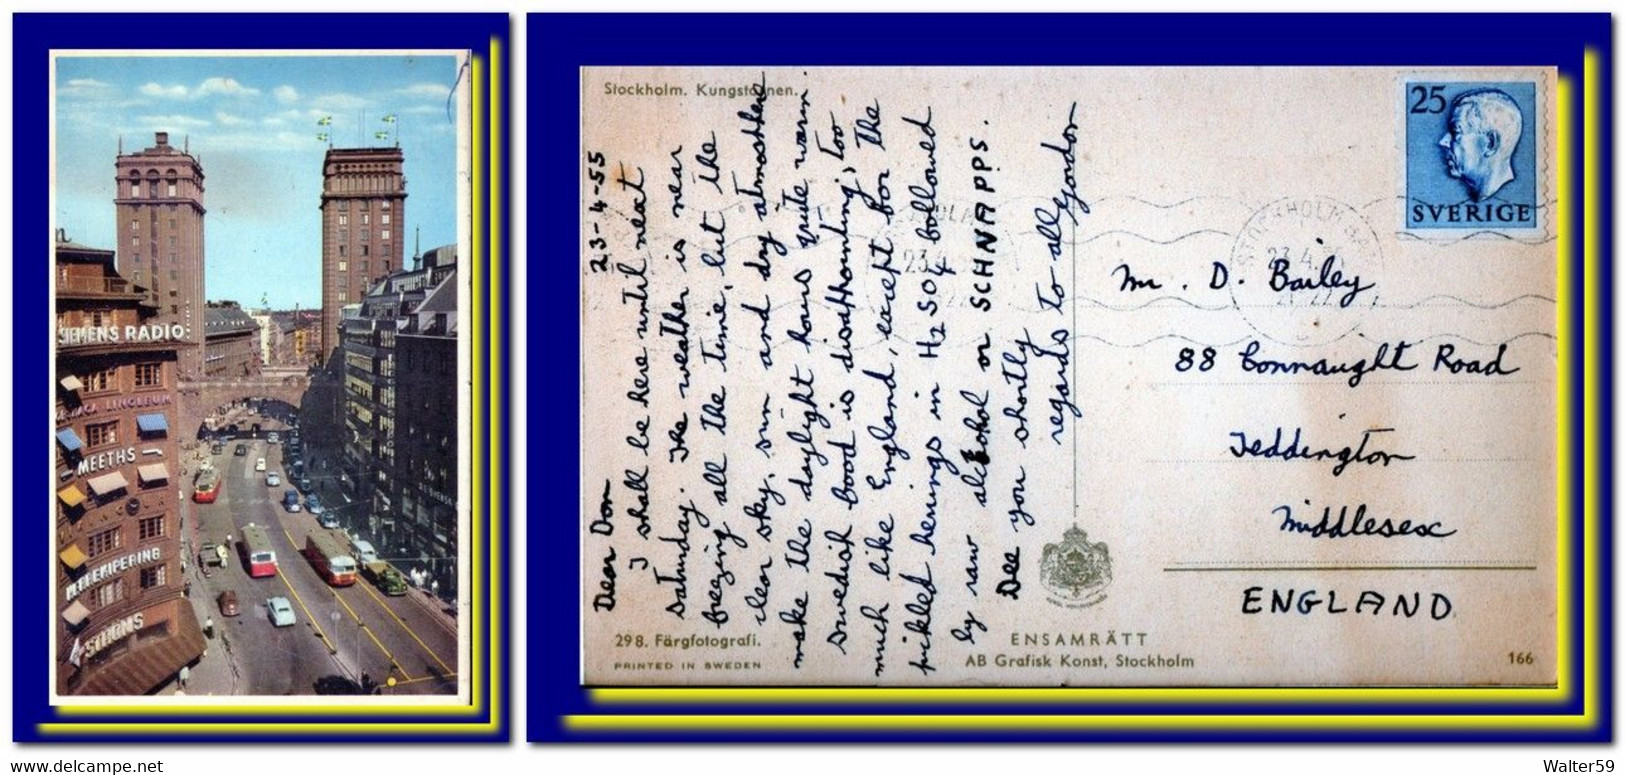 SIEMENS RADIO
LINOLEUM
MEETHS
EKIPERING
SITIOMS
Stockholm. Kungstornen.
23-4-55
Dear Don
I shall be here until next
saturday. The weather is near
freezing all the time, but the
clear sky, sun and dry atmosphere
make the daylight hours quite warm.
Swedish food is disappointing, too
much like England, except for the
pickled herrings in H2SO4 followed
by raw alcohol or SCHNAPPS.
See you shortly
regards to all Gordon
25
SVERIGE
STOCKHOLM BAN
23.4.55
21-22
Mr. D. Bailey
88 Connaught Road
Teddington
Middlesex
ENGLAND
298. Färgfotografi.
PRINTED IN SWEDEN
ENSAMRÄTT
AB Grafisk Konst, Stockholm
166
www.delcampe.net
Walter59